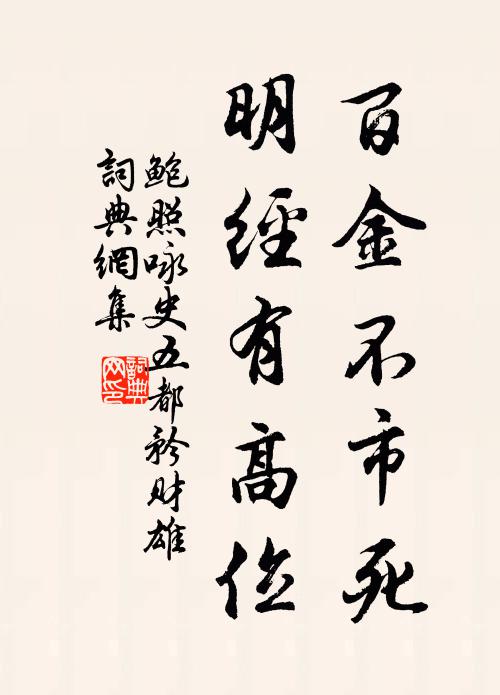 百金不市死
明經有高位
鮑照咏史五都矜財雄
詞典網集
詞典網印